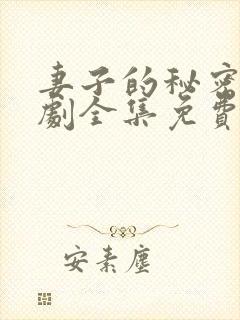 妻子的秘密
劇全集免費
安素塵